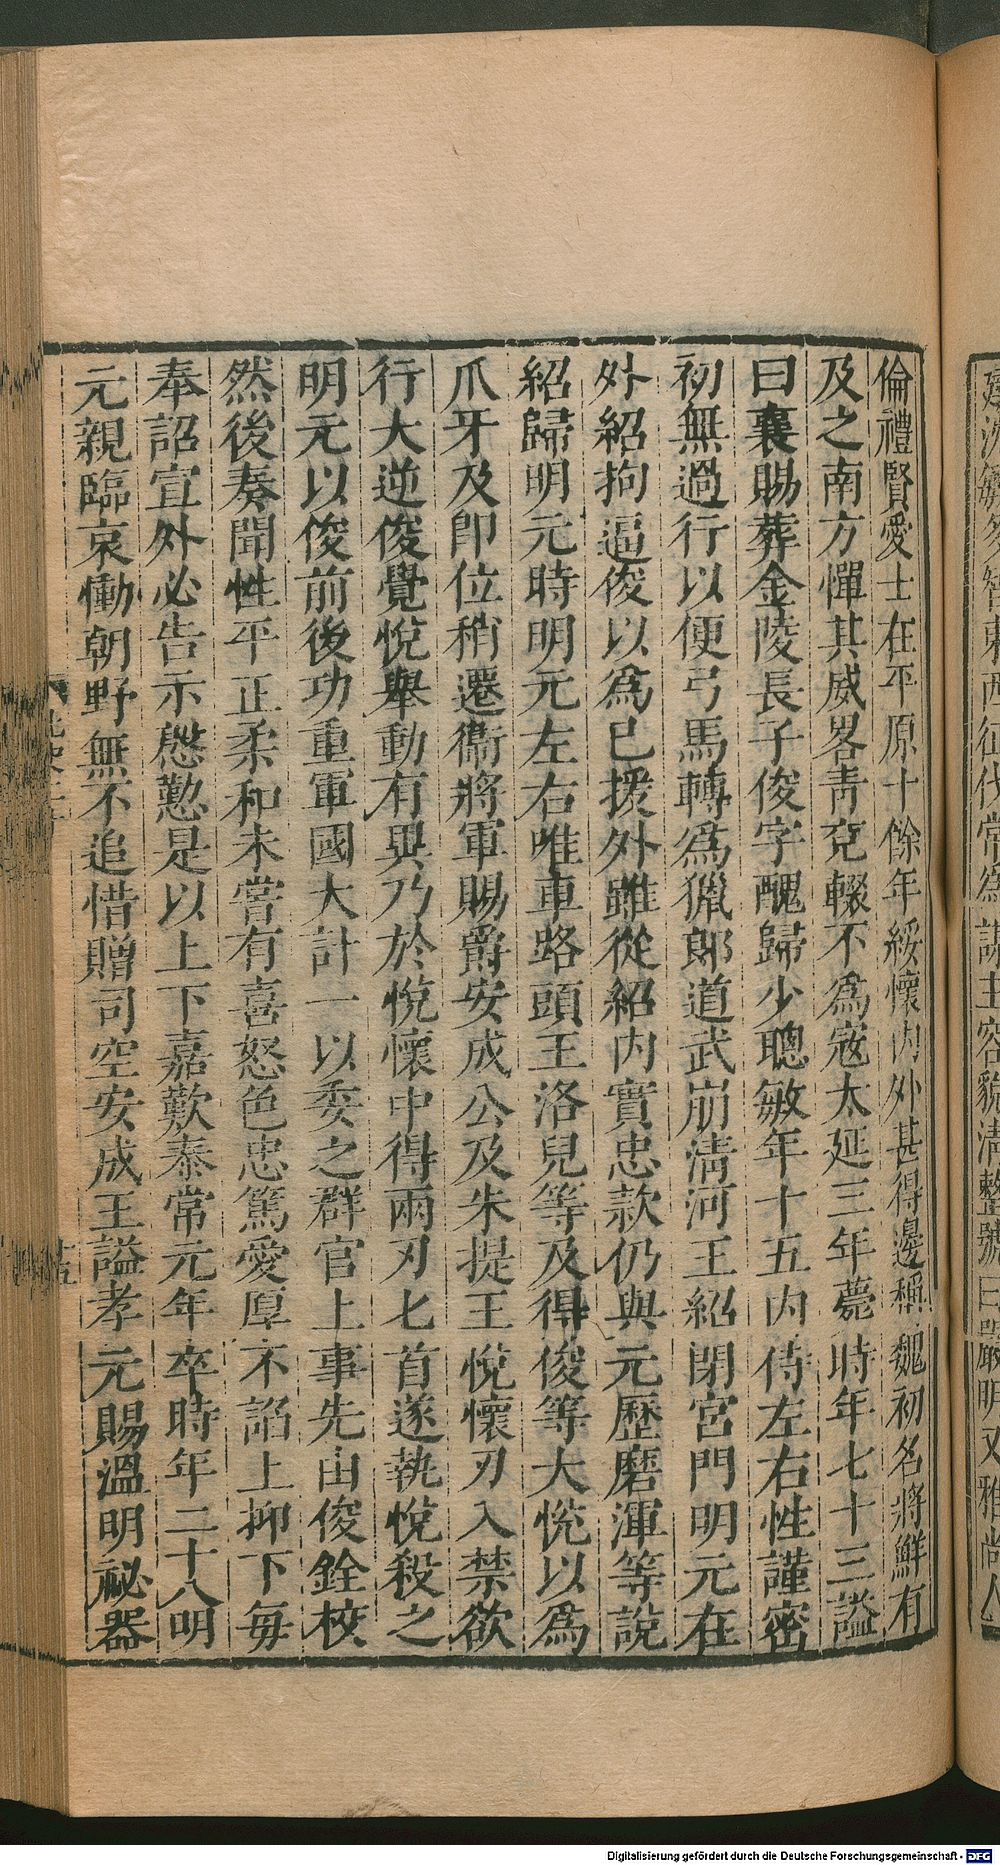 倫禮賢愛士在平原十餘年綏懷內外甚得邊稱魏初名將鮮有
及之南方憚其威畧青兗輟不爲寇太延三年薨時年七十三謚
曰襄賜葬金陵長子俊字醜歸少聰敏年十五內侍左右性謹密
初無過行以便弓馬轉爲獵郎道武崩淸河王紹閉宮門明元在
外紹拘逼俊以爲已援外雖從紹內實忠款仍與元歷磨渾等說
紹歸明元時明元左右唯車路頭王洛兒等及得俊等大悅以爲
爪牙及卽位稍遷衞將軍賜爵安成公及朱提王悅懷刃入禁欲
行大逆俊覺悅舉動有異乃於悅懷中得兩刃匕首遂執悅殺之
明元以俊前後功重軍國大計一以委之群官上事先由俊銓校
然後奏聞性平正柔和未嘗有喜怒色忠篤愛厚不諂上抑下每
奉詔宣外必告示慇懃是以上下嘉歎泰常元年卒時年二十八明
元親臨哀慟朝野無不追惜贈司空安成王謚孝元賜溫明祕器
西征伐常爲謀主容貌淸整號曰嚴明又雅尚人
Digitalisierung gefördert durch die Deutsche Forschungsgemeinschaft - DFG